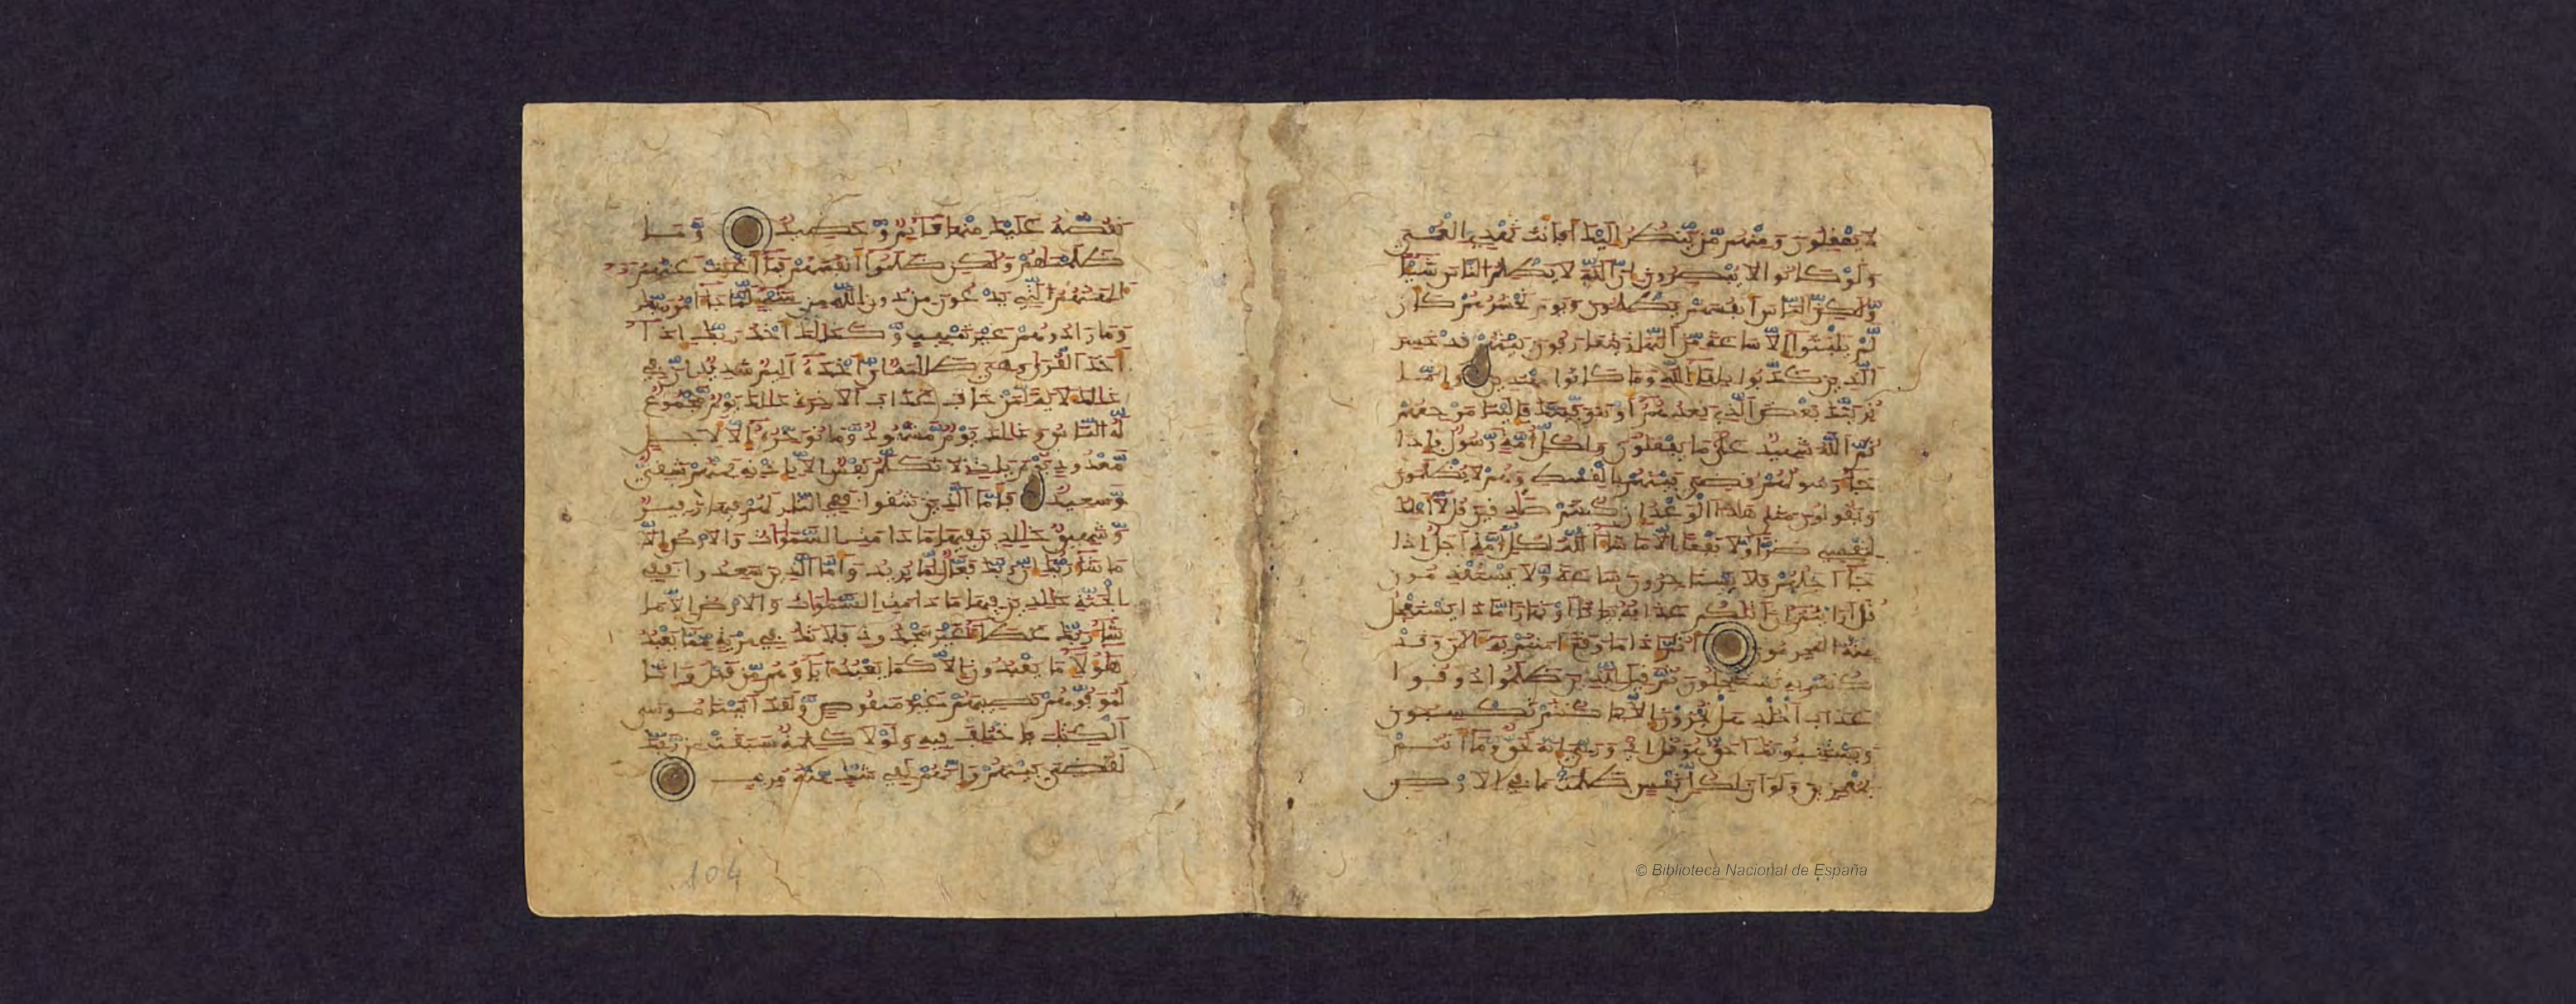 لا يعقلون ومنهم من ينظر إليك أفأنت تهدي العمي
ولو كانوا لا يبصرون إن الله لا يظلم الناس شيئا
ولكن الناس أنفسهم يظلمون ويوم نحشرهم كأن
لم يلبثوا إلا ساعة من النهار يتعارفون بينهم قد خسر
الذين كذبوا بلقاء الله وما كانوا مهتدين وإما
نرينك بعض الذي نعدهم أو نتوفينك فإلينا مرجعهم
ثم الله شهيد على ما يفعلون ولكل أمة رسول فإذا
جاء رسولهم قضي بينهم بالقسط وهم لا يظلمون
ويقولون متى هذا الوعد إن كنتم صدقين قل لا أملك
لنفسي ضرا ولا نفعا إلا ما شاء الله لكل أمة أجل إذا
جاء أجلهم فلا يستأخرون ساعة ولا يستقدمون
قل أرأيتم إن أتيكم عذابه بيتا أو نهارا ماذا يستعجل
منه المجرمون أثم إذا ما وقع ءامنتم به ءالن وقد
كنتم به تستعجلون ثم قيل للذين ظلموا ذوقوا
عذاب الخلد هل تجزون إلا بما كنتم تكسبون
ويستنبئونك أحق هو قل إي وربي إنه لحق وما أنتم
بمعجزين ولو أن لكل نفس ظلمت ما في الأرض
© Biblioteca Nacional de España
نقصه عليك منها قائم وحصيد وما
ظلمنهم ولكن ظلموا أنفسهم فما أغنت عنهم
ءالهتهم التي يدعون من دون الله من شيء لما جاء أمر ربك
وما زادوهم غير تتبيب وكذلك أخذ ربك إذا
أخذ القرى وهي ظلمة إن أخذه أليم شديد إن في
ذلك لأية لمن خاف عذاب الأخرة ذلك يوم مجموع
له الناس وذلك يوم مشهود وما نؤخره إلا لأجل
معدود يوم يأت لا تكلم نفس إلا بإذنه فمنهم شقي
وسعيد فأما الذين شقوا ففي النار لهم فيها زفير
وشهيق خلدين فيها ما دامت السموات والأرض إلا
ما شاء ربك إن ربك فعال لما يريد وأما الذين سعدوا ففي
الجنة خلدين فيها ما دامت السموات والأرض إلا ما
شاء ربك عطاء غير مجذوذ فلا تك في مرية مما يعبد
هؤلاء ما يعبدون إلا كما يعبد ءاباؤهم من قبل وإنا
لموفوهم نصيبهم غير منقوص ولقد ءاتينا موسى
الكتب فاختلف فيه ولولا كلمة سبقت من ربك
لقضي بينهم وإنهم لفي شك منه مريب
104